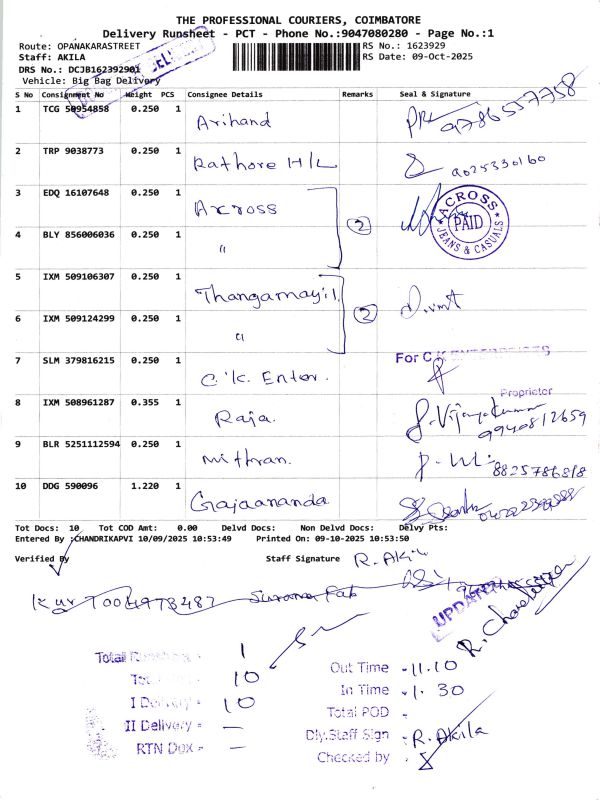 THE PROFESSIONAL COURIERS, COIMBATORE
Delivery Runsheet - PCT - Phone No.:9047080280 - Page No.:1
Route: OPANAKARASTREET
RS No.: 1623929
Staff: AKILA
RS Date: 09-Oct-2025
DRS No.: DCJB162392901
Vehicle: Big Bag Delivery
S No Consignment No Weight PCS Consignee Details Remarks Seal & Signature
1 TCG 50954858 0.250 1 Arihand 9786557758
2 TRP 9038773 0.250 1 Rathore H/L 9025330160
3 EDQ 16107648 0.250 1 Across
2 ACROSS PAID JEANS & CASUALS
4 BLY 856006036 0.250 1 "
5 IXM 509106307 0.250 1 Thangamayil
2
6 IXM 509124299 0.250 1 "
7 SLM 379816215 0.250 1 C.K. Enter. For C K ENTERPRISES
Proprietor
8 IXM 508961287 0.355 1 Raja. J. Vijayakumar
9940812659
9 BLR 5251112594 0.250 1 Mithran. 8825786818
10 DDG 590096 1.220 1 Gajaananda
Tot Docs: 10 Tot COD Amt: 0.00 Delvd Docs: Non Delvd Docs: Delvy Pts:
Entered By :CHANDRIKAPVI 10/09/2025 10:53:49 Printed On: 09-10-2025 10:53:50
Verified By Staff Signature R. Akila
UPDATED
1
Out Time - 11.10
10
In Time - 1. 30
I Delivery = 10
Total POD -
II Delivery = —
Dly.Staff Sign - R. Akila
RTN Dox = —
Checked by